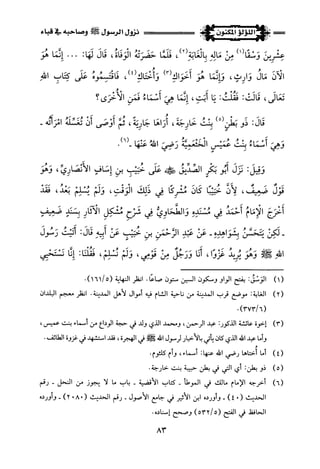 اللؤلؤ المكنون
نزول الرسول ﷺ وصاحبيه في قباء
عِشْرِينَ وَسْقًا(١) مِنْ مَالِهِ بِالْغَابَةِ(٢)، فَلَمَّا حَضَرَتْهُ الْوَفَاةُ، قَالَ لَهَا: ... إِنَّمَا هُوَ
الْآنَ مَالُ وَارِثٍ، وَإِنَّمَا هُوَ أَخَوَاكِ(٣) وَأُخْتَاكِ(٤)، فَاقْتَسِمُوهُ عَلَى كِتَابِ اللهِ
تَعَالَى، قَالَتْ: فَقُلْتُ: يَا أَبَتِ، إِنَّمَا هِيَ أَسْمَاءُ فَمَنِ الْأُخْرَى؟
قَالَ: ذُو بَطْنِ(٥) بِنْتِ خَارِجَةَ، أُرَاهَا جَارِيَةً، ثُمَّ أَوْصَى أَنْ تُغَسِّلَهُ امْرَأَتُهُ -
وَهِيَ أَسْمَاءُ بِنْتُ عُمَيْسٍ الْخَثْعَمِيَّةُ رَضِيَ اللهُ عَنْهَا.(٦)
وَقِيلَ: نَزَلَ أَبُو بَكْرٍ الصِّدِّيقُ عَلَى خُبَيْبِ بنِ إِسَافٍ الْأَنْصَارِيِّ، وَهُوَ
قَوْلٌ ضَعِيفٌ، لِأَنَّ خُبَيْبًا كَانَ مُشْرِكًا فِي ذَلِكَ الْوَقْتِ، وَلَمْ يُسْلِمْ بَعْدُ، فَقَدْ
أَخْرَجَ الْإِمَامُ أَحْمَدُ فِي مُسْنَدِهِ وَالطَّحَاوِيُّ فِي شَرْحِ مُشْكِلِ الْآثَارِ بِسَنَدٍ ضَعِيفٍ
- لَكِنْ يَتَحَسَّنُ بِشَوَاهِدِهِ - عَنْ عَبْدِ الرَّحْمَنِ بنِ خُبَيْبٍ عَنْ أَبِيهِ قَالَ: أَتَيْتُ رَسُولَ
اللهِ ﷺ وَهُوَ يُرِيدُ غَزْوًا، أَنَا وَرَجُلٌ مِنْ قَوْمِي، وَلَمْ نُسْلِمْ، فَقُلْنَا: إِنَّا نَسْتَحْيِي
(١) الوَسْقُ: بفتح الواو وسكون السين ستون صاعًا. انظر النهاية (١٦١/٥).
(٢) الغابة: موضع قرب المدينة من ناحية الشام فيه أموال لأهل المدينة. انظر معجم البلدان
(٣٧٣/٦)
(٣) إخوة عائشة الذكور: عبد الرحمن، ومحمد الذي ولد في حجة الوداع من أسماء بنت عميس،
وأما عبد الله الذي كان يأتي بالأخبار لرسول الله ﷺ في الهجرة، فقد استشهد في غزوة الطائف.
(٤) أما أختاها رضي الله عنها: أسماء، وأم كلثوم.
(٥) ذو بطن: أي التي في بطن حبيبة بنت خارجة.
(٦) أخرجه الإمام مالك في الموطأ - كتاب الأقضية - باب ما لا يجوز من النحل - رقم
الحديث (٤٠) - وأورده ابن الأثير في جامع الأصول - رقم الحديث (٢٠٨٠) - وأورده
الحافظ في الفتح (٥٣٢/٥) وصحح إسناده.
٨٣